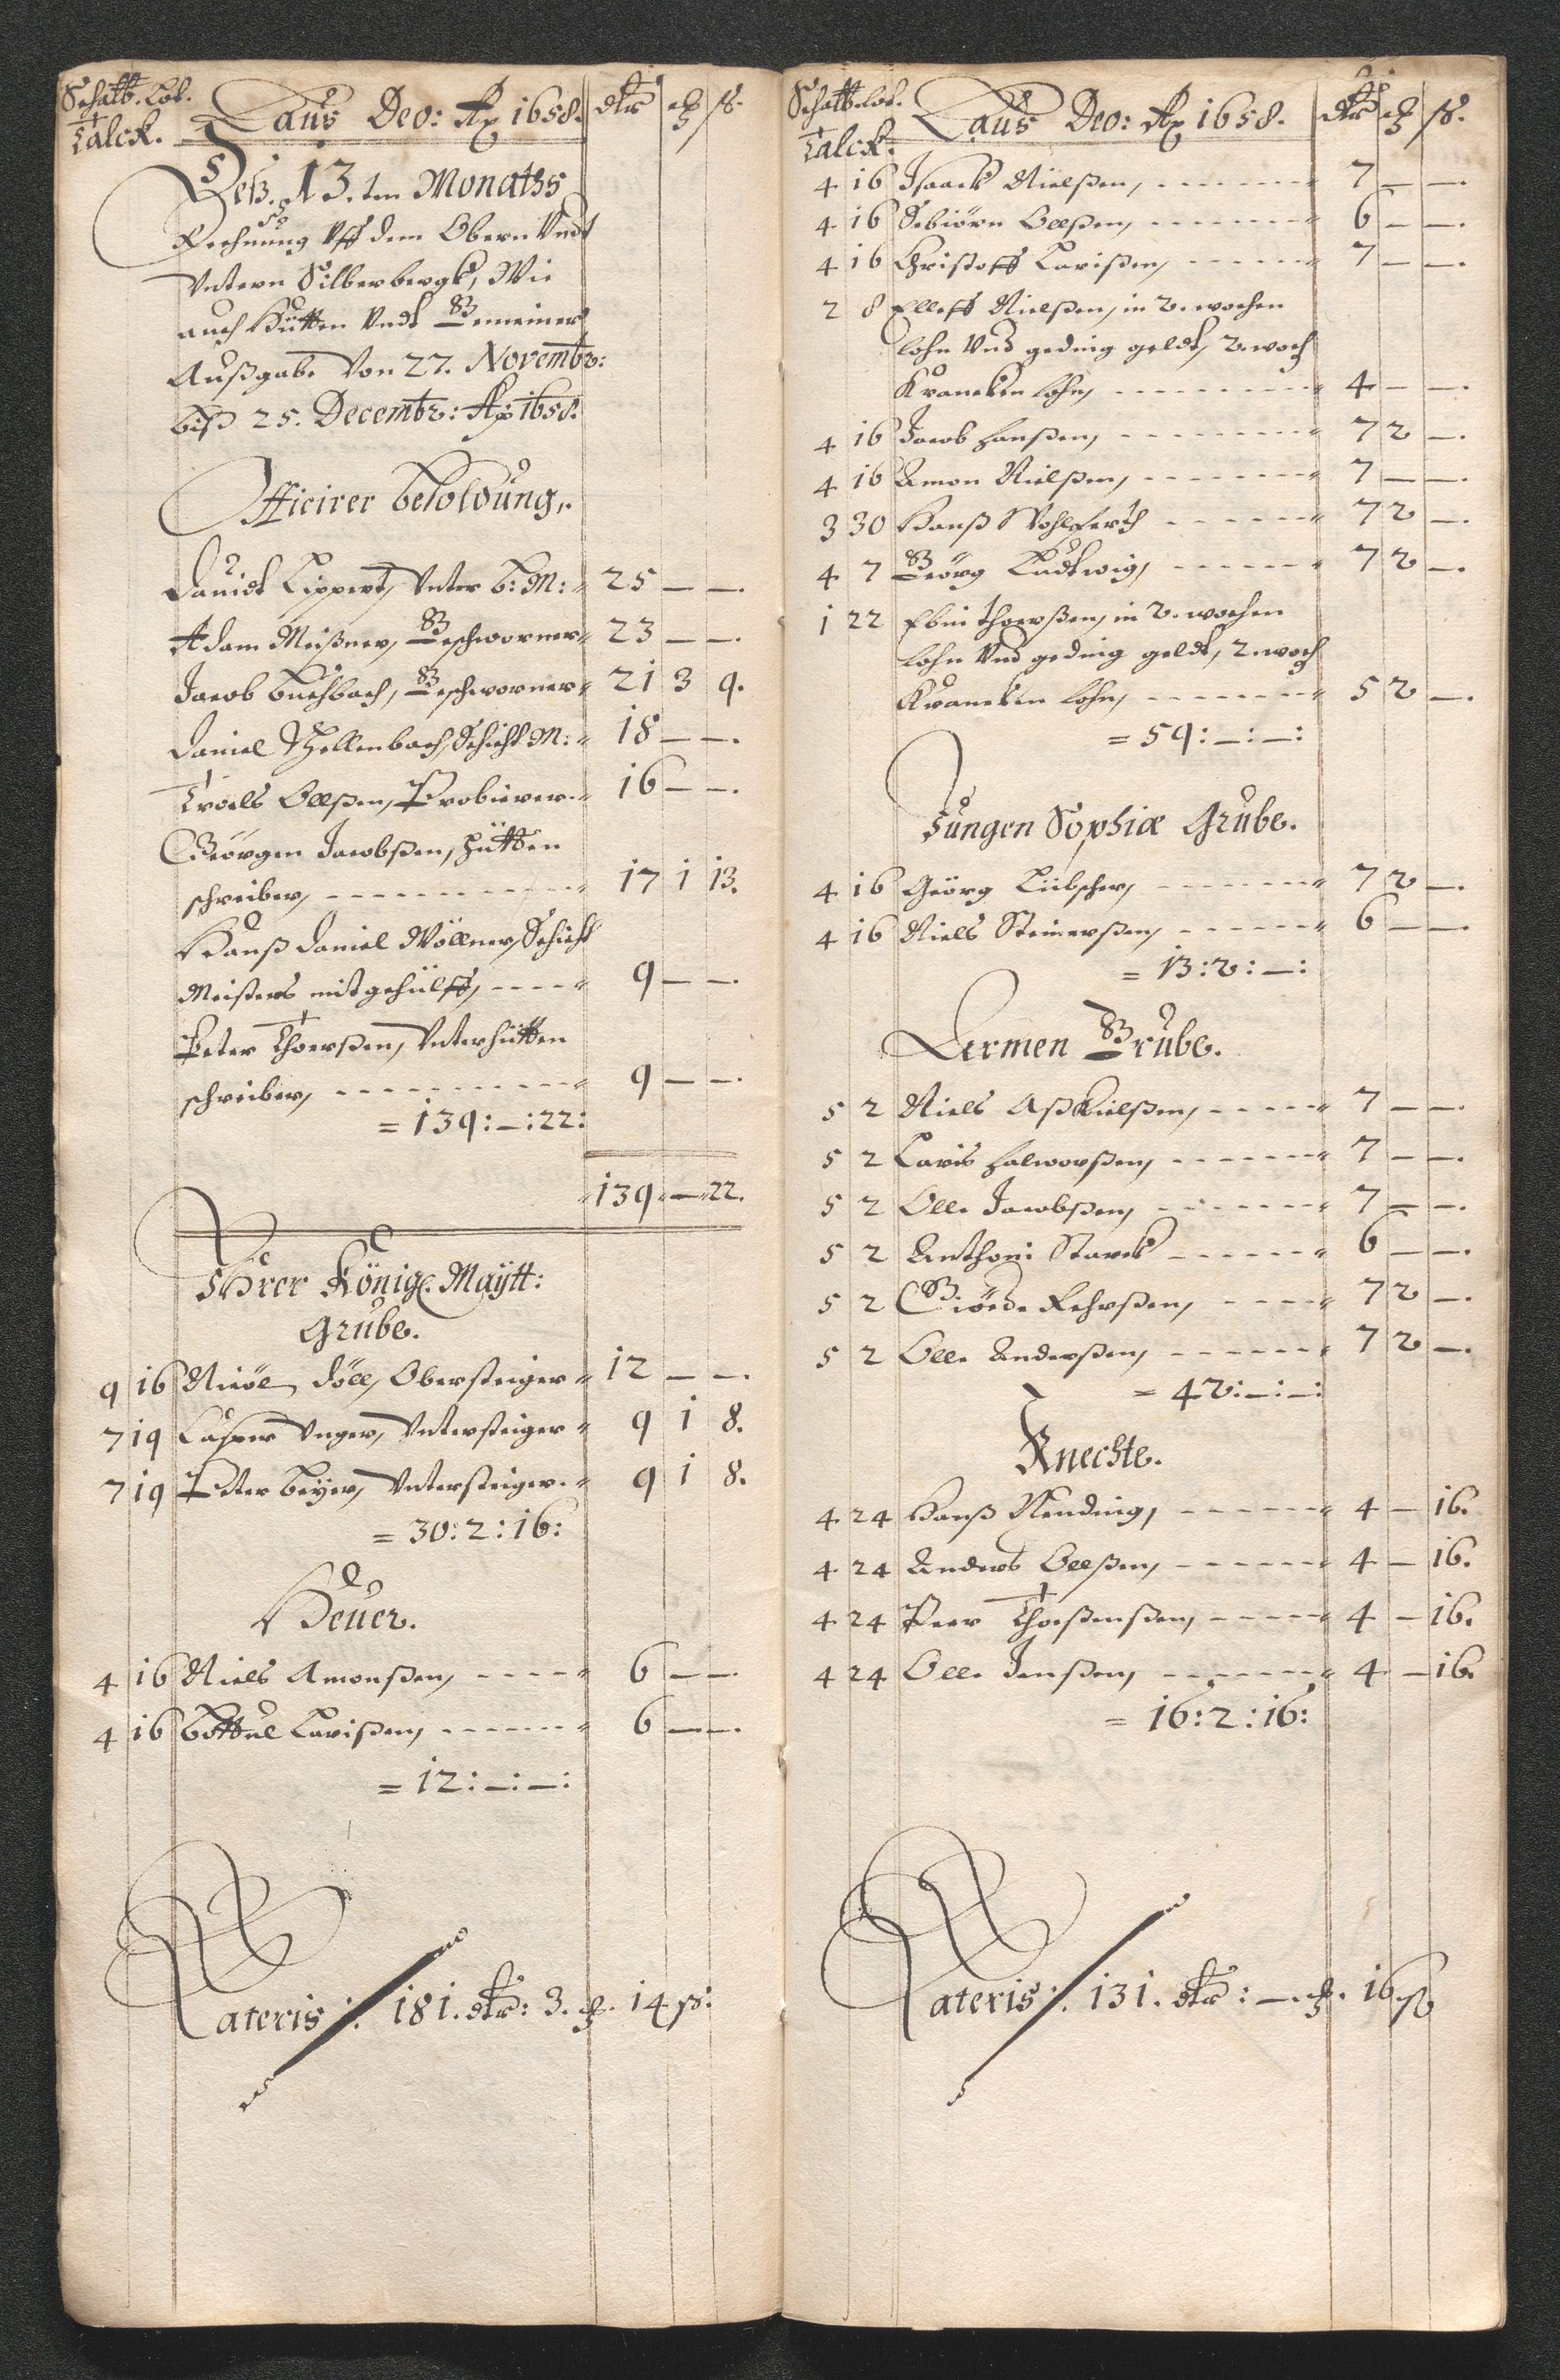 Schatt. Lod.
Talck.
Laus Deo: Ao 1658. dlr
Deß. 13.ten Monatss
Rechnung Vff dem Obern Vndt
Vntern Silberbergk, Wie
auch Hütten Vndt Gemeiner
Außgabe Von 27. Novembr:
biß 25. Decembr: Ao 1658.
Officirer besoldung,
Dauidt Lippert, Vnter b: M: 25 — —.
Adam Meißner, Geschworner 23 — —.
Jacob Buchbach, Geschworner 21 3 9.
Daniel Schellenbach, Schicht M: 18 — —.
Troels Ollßen, Probierer 16 — —.
Geörgen Jacobßen, Hütten
schreiber, 17 1 13.
Hanß Daniel Wöllner, Schicht
Meisters mitgehülff, 9 — —.
Peter Thoerßen, Vnterhütten
schreiber, 9 — —.
= 139: —: 22:
139 — 22.
Ihrer Königl. Maÿtt:
Grube.
9 16 Nicöl Döll, Obersteiger 12 — —.
7 19 Casper Vnger, Vntersteiger 9 1 8.
7 19 Peter Beÿer, Vntersteiger 9 1 8.
= 30: 2: 16:
Heuer.
4 16 Niels Amonßen, 6 — —
4 16 Bottul Larißen, 6 — —.
= 12: —: —:
Lateris: 181. dlr: 3. 14 ß:
Schatt. Lod.
Talck.
Laus Deo: Ao 1658. dlr
4 16 Isaack Nielßen, 7 — —.
4 16 Sebiörn Ollßen, 6 — —.
4 16 Christoff Larißen, 7 — —.
2 8 Elleff Nielßen, in 2. wochen
lohn Vnd geding geldt, 2. woch
Krancken lohn, 4 — —.
4 16 Jacob Hanßen, 7 2 —.
4 16 Amon Nielßen, 7 — —.
3 30 Hanß Wohlferth 7 2 —.
4 7 Geörg Ludtwig, 7 2 —.
1 22 Ebin Thoerßen, in 2. wochen
lohn Vnd geding geldt, 2. woch
Krancken lohn, 5 2 —.
= 59: —: —:
Jungen Sophiæ Grube.
4 16 Geörg Lübscher, 7 2 —.
4 16 Niels Steinerßen, 6 — —.
= 13: 2: —:
Lermen Grube.
5 2 Niels Aßkielßen, 7 — —.
5 2 Laris Halworßen, 7 — —.
5 2 Olle Jacobßen, 7 — —.
5 2 Anthoni Starck 6 — —.
5 2 Giöede Rehrßen, 7 2 —.
5 2 Olle Anderßen, 7 2 —.
= 42: —: —:
Knechte.
4 24 Hanß Nending, 4 — 16.
4 24 Anders Ollßen, 4 — 16.
4 24 Peer Thoeßenßen, 4 — 16.
4 24 Olle Jenßen, 4 — 16.
= 16: 2: 16:
Lateris: 131. dlr: —. 16 ß